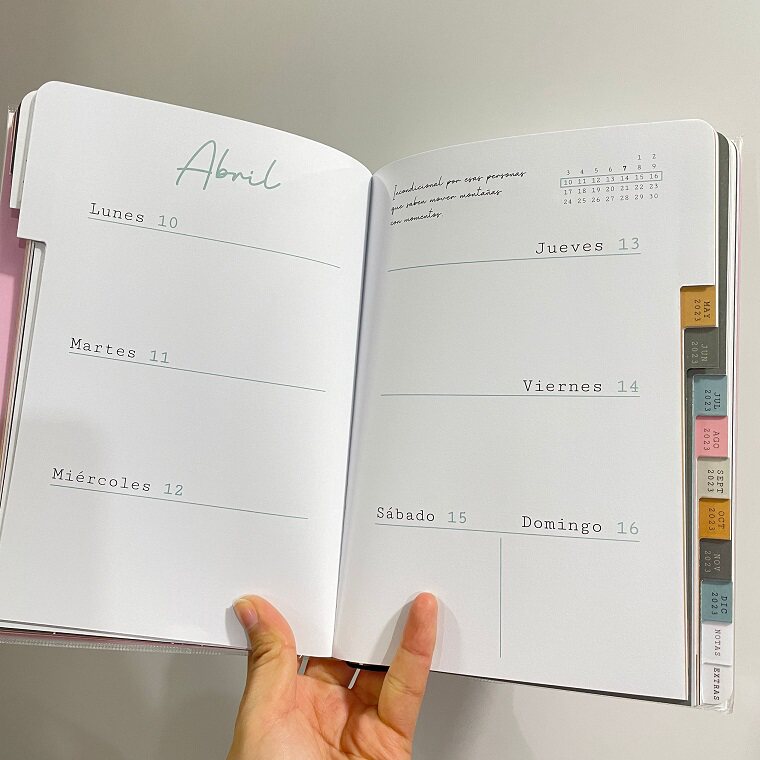 Abril
Lunes 10
Martes 11
Miércoles 12
Incondicional por esas personas
que saben mover montañas
con momentos
1 2
3 4 5 6 7 8 9
10 11 12 13 14 15 16
17 18 19 20 21 22 23
24 25 26 27 28 29 30
Jueves 13
Viernes 14
Sábado 15 Domingo 16
MAY
2023
JUN
2023
JUL
2023
AGO
2023
SEPT
2023
OCT
2023
NOV
2023
DIC
2023
NOTAS
EXTRAS